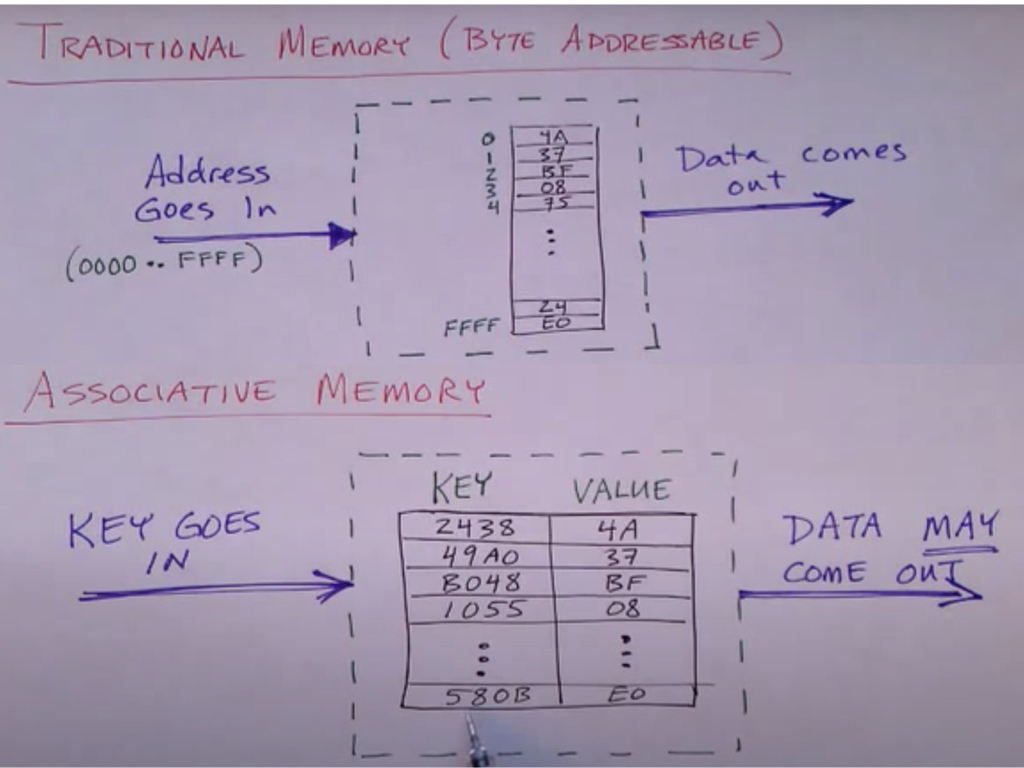 TRADITIONAL MEMORY (BYTE ADDRESSABLE)
Address
Goes In
(0000 .. FFFF)
0 4A
1 37
2 BF
3 08
4 75
24
FFFF E0
Data comes
out
ASSOCIATIVE MEMORY
KEY GOES
IN
KEY VALUE
2438 4A
49A0 37
B048 BF
1055 08
580B E0
DATA MAY
COME OUT